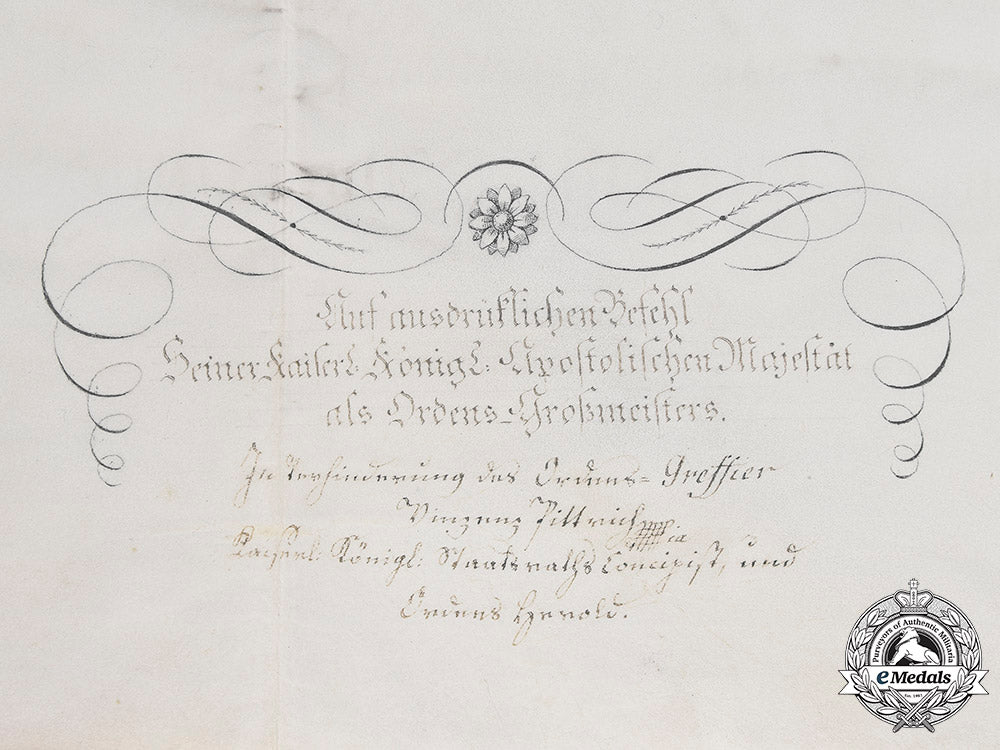 Auf ausdrüklichen Befehl
Seiner Kaiserl: Königl: Apostolischen Majestät
als Ordens-Großmeisters.
In Verhinderung des Ordens- Greffier
Vinzenz Pittrich
Kaiserl: Königl: Staatsraths Concipist, und
Ordens Herold.
Purveyors of Authentic Militaria
eMedals